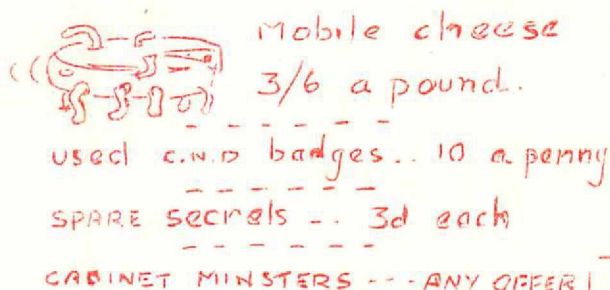 Mobile cheese
3/6 a pound.
used C.N.D badges.. 10 a penny
SPARE secrets .. 3d each
CABINET MINSTERS --- ANY OFFER!